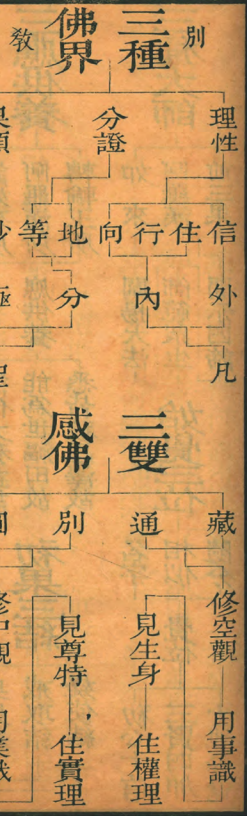 別
三種
佛界
教
理性
分證
信
住
行
向
地
等
外
凡
內
分
三雙
感佛
藏
通
別
修空觀
用事識
見生身
住權理
見尊特
住實理